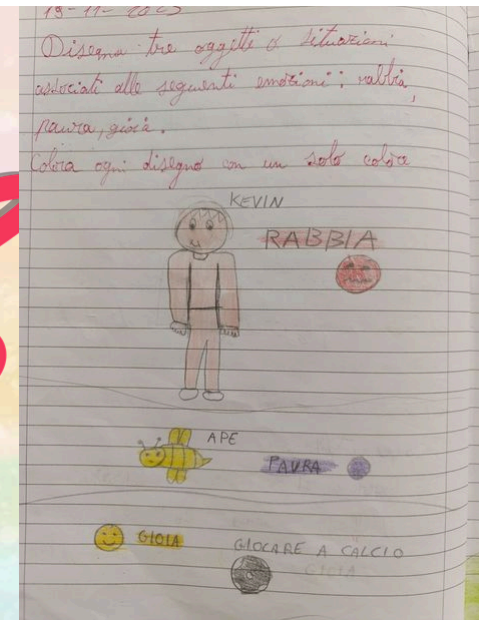 19-11-2025
Disegna tre oggetti o situazioni
associati alle seguenti emozioni: rabbia,
paura, gioia.
Colora ogni disegno con un solo colore
KEVIN
RABBIA
APE
PAURA
GIOIA
GIOCARE A CALCIO
GIOIA